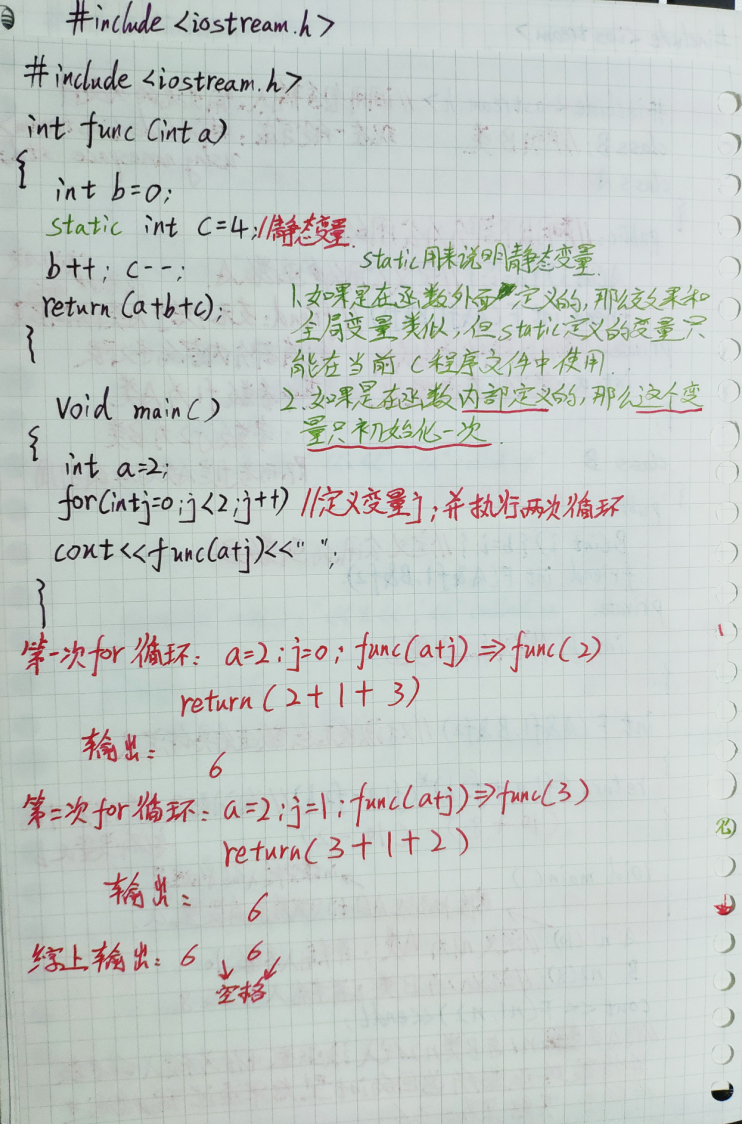 #include <iostream.h>
#include <iostream.h>
int func (int a)
{
int b=0;
static int c=4;//静态变量.
b++; c--;
return (a+b+c);
}
static用来说明静态变量.
1.如果是在函数外面定义的,那么效果和
全局变量类似,但static定义的变量只
能在当前c程序文件中使用.
2.如果是在函数内部定义的,那么这个变
量只初始化一次.
Void main()
{
int a=2;
for(int j=0;j<2;j++) //定义变量j;并执行两次循环
cout<<func(a+j)<<" ";
}
第一次for循环: a=2;j=0; func(a+j)⇒func(2)
return(2+1+3)
输出:
6
第二次for循环: a=2;j=1;func(a+j)⇒func(3)
return(3+1+2)
输出:
6
综上输出: 6 6
空格